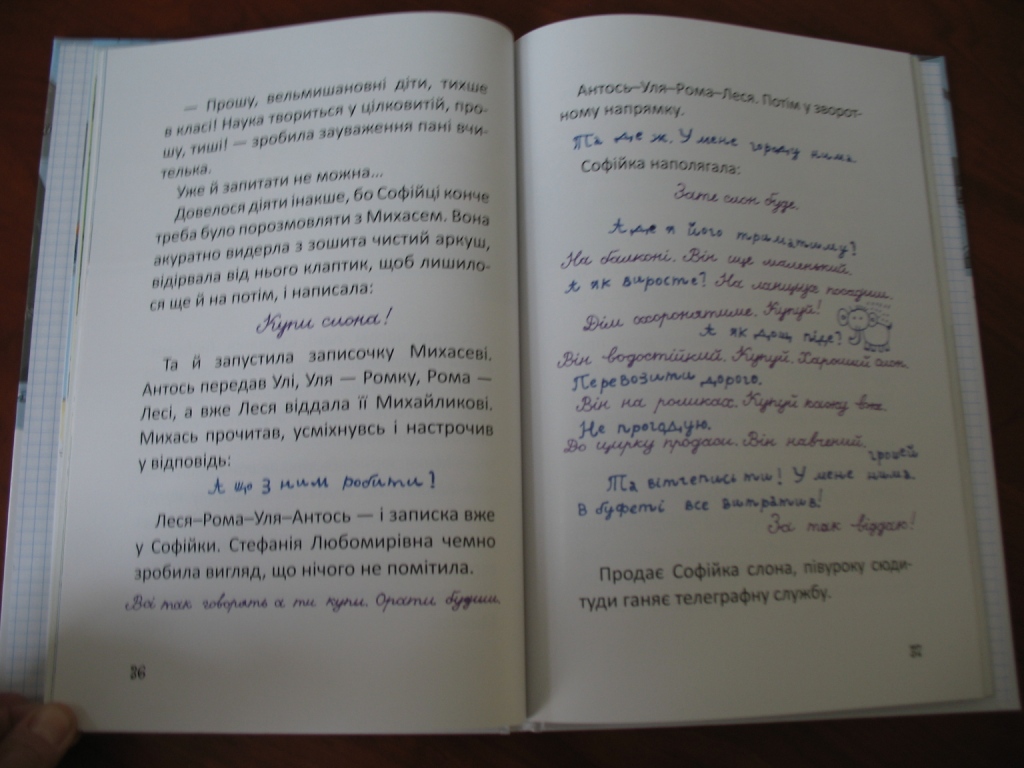 — Прошу, вельмишановні діти, тихше
в класі! Наука твориться у цілковитій, про-
шу, тиші! — зробила зауваження пані вчи-
телька.
Уже й запитати не можна...
Довелося діяти інакше, бо Софійці конче
треба було порозмовляти з Михасем. Вона
акуратно видерла з зошита чистий аркуш,
відірвала від нього клаптик, щоб лишило-
ся ще й на потім, і написала:
Купи слона!
Та й запустила записочку Михасеві.
Антось передав Улі, Уля — Ромку, Рома —
Лесі, а вже Леся віддала її Михайликові.
Михась прочитав, усміхнувсь і настрочив
у відповідь:
А що з ним робити?
Леся–Рома–Уля–Антось — і записка вже
у Софійки. Стефанія Любомирівна чемно
зробила вигляд, що нічого не помітила.
Всі так говорять а ти купи. Орати будиш.
36
Антось–Уля–Рома–Леся. Потім у зворот-
ному напрямку.
Та де ж. У мене городу нима.
Софійка наполягала:
Зате слон буде.
А де я його триматиму?
На балконі. Він ще маленький.
А як виросте? На ланцуга посадиш.
Дім охоронятиме. Купуй!
А як дощ піде?
Він водостійкий. Купуй. Хароший слон.
Перевозити дорого.
Він на роликах. Купуй кажу вже.
Не прогадую.
До цирку продаси. Він навчений.
Та вітчепись ти! У мене грошей нима.
В буфеті все витратив!
За так віддаю!
Продає Софійка слона, півуроку сюди-
туди ганяє телеграфну службу.
37